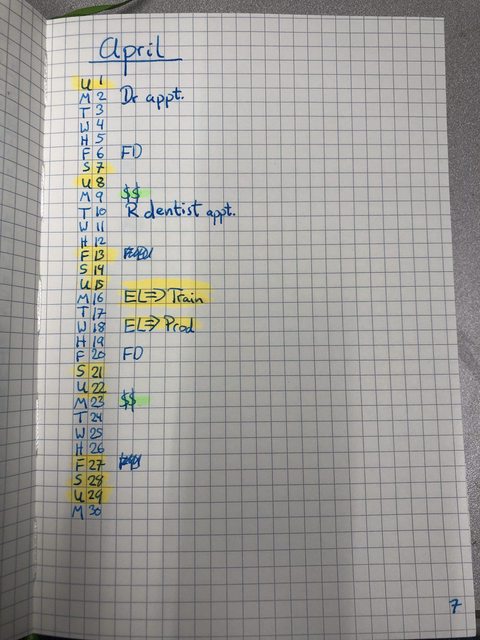 April
U 1
M 2 Dr appt.
T 3
W 4
H 5
F 6 FD
S 7
U 8
M 9 $$
T 10 R dentist appt.
W 11
H 12
F 13
S 14
U 15
M 16 EL => Train
T 17
W 18 EL => Prod
H 19
F 20 FD
S 21
U 22
M 23 $$
T 24
W 25
H 26
F 27
S 28
U 29
M 30
7